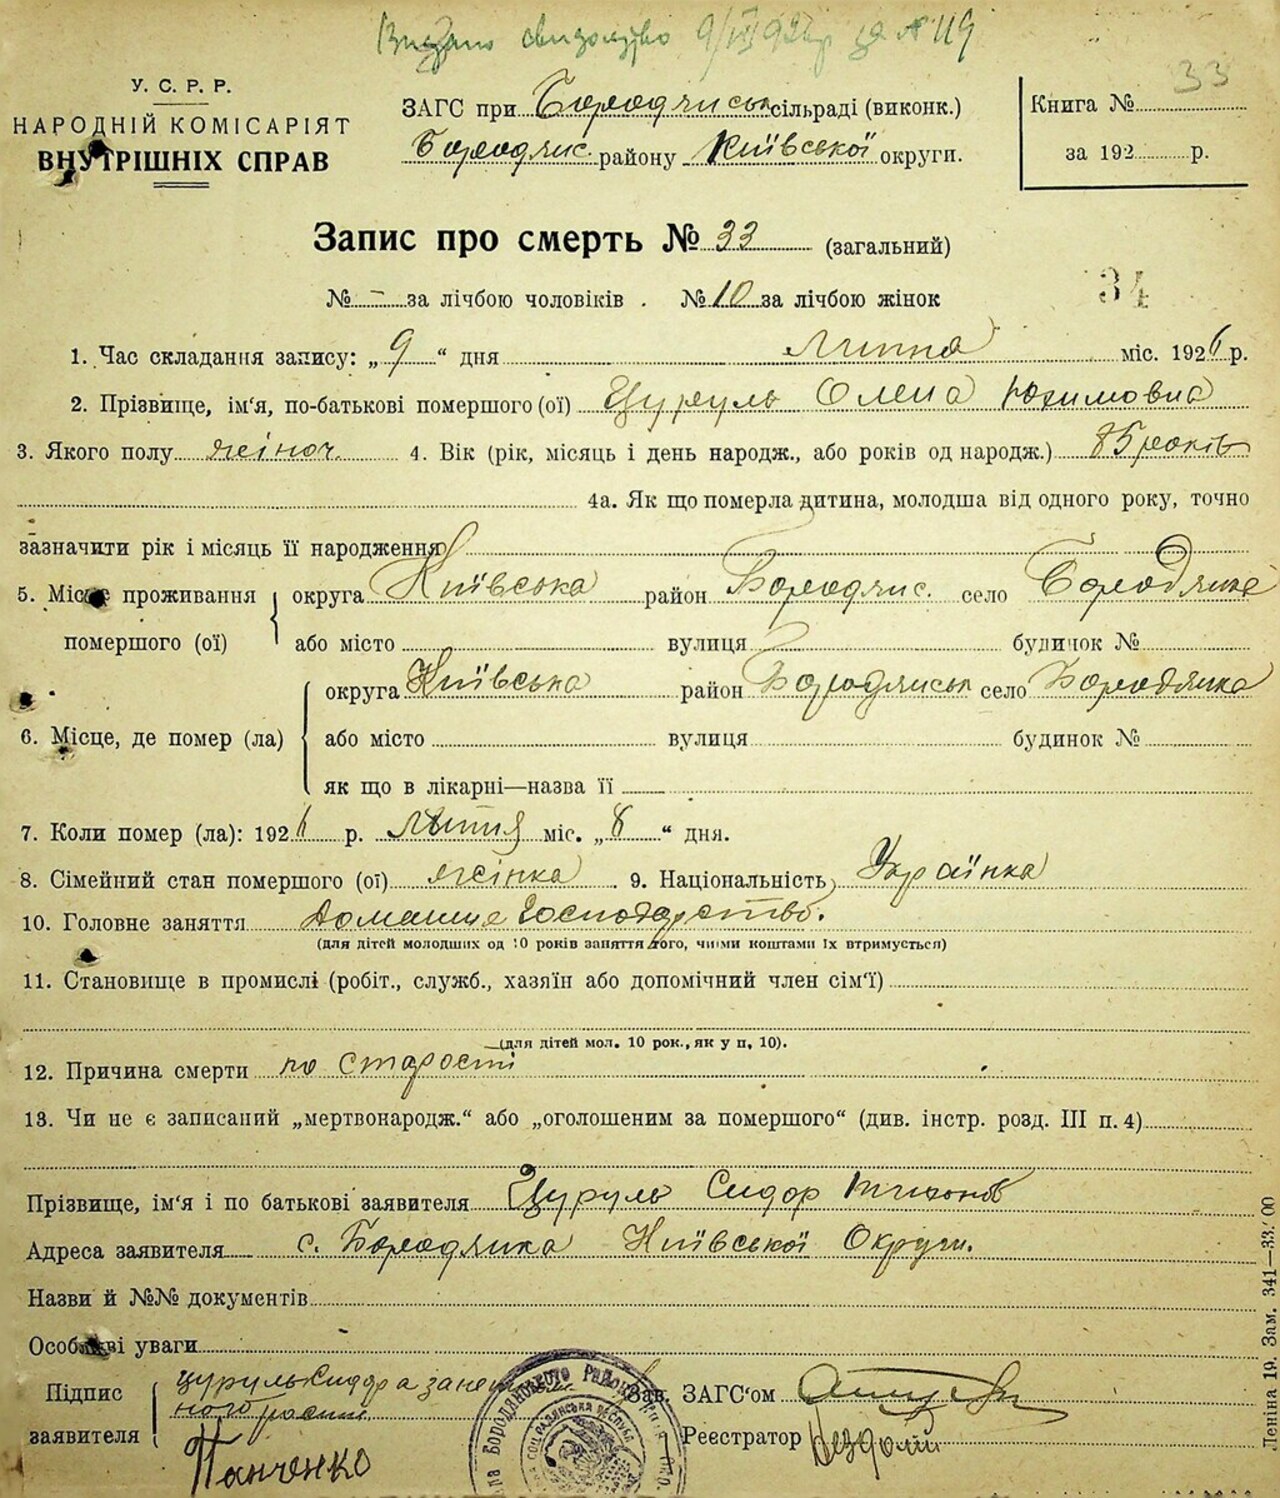 Видано свидоцтво 9/VII 1926р за № 119
У. С. Р. Р.
НАРОДНІЙ КОМІСАРІЯТ
ВНУТРІШНІХ СПРАВ
ЗАГС при Бородянськ сільраді (виконк.)
Бородянс. району Київської округи.
33
Книга №
за 192 р.
Запис про смерть № 33 (загальний)
№ – за лічбою чоловіків. № 10 за лічбою жінок
34
1. Час складання запису: „9“ дня Липня міс. 1926 р.
2. Прізвище, ім'я, по-батькові помершого (ої) Цуруль Олена Юхимовна
3. Якого полу жіноч. 4. Вік (рік, місяць і день народж., або років од народж.) 85 років
4а. Як що померла дитина, молодша від одного року, точно
зазначити рік і місяць її народження
5. Місце проживання округа Київська район Бородянс. село Бородянка
помершого (ої) або місто вулиця будинок №
округа Київська район Бородянськ село Бородянка
6. Місце, де помер (ла) або місто вулиця будинок №
як що в лікарні—назва її
7. Коли помер (ла): 1926 р. Липня міс. „8“ дня.
8. Сімейний стан помершого (ої) жінка 9. Національність Українка
10. Головне заняття Домашнє Господарство.
(для дітей молодших од 10 років заняття того, чиїми коштами їх втримується)
11. Становище в промислі (робіт., служб., хазяїн або допомічний член сім'ї)
(для дітей мол. 10 рок., як у п. 10).
12. Причина смерти по старости
13. Чи не є записаний „мертвонародж.“ або „оголошеним за помершого“ (див. інстр. розд. III п. 4)
Прізвище, ім'я і по батькові заявителя Цуруль Сидор Тихонов
Адреса заявителя с. Бородянка Київської Округи.
Назви й №№ документів
Особливі уваги
Підпис Цуруль Сидора
заявителя
Панченко
Зав. ЗАГС'ом
Реєстратор
Леніна 19. Зам. 341—33.